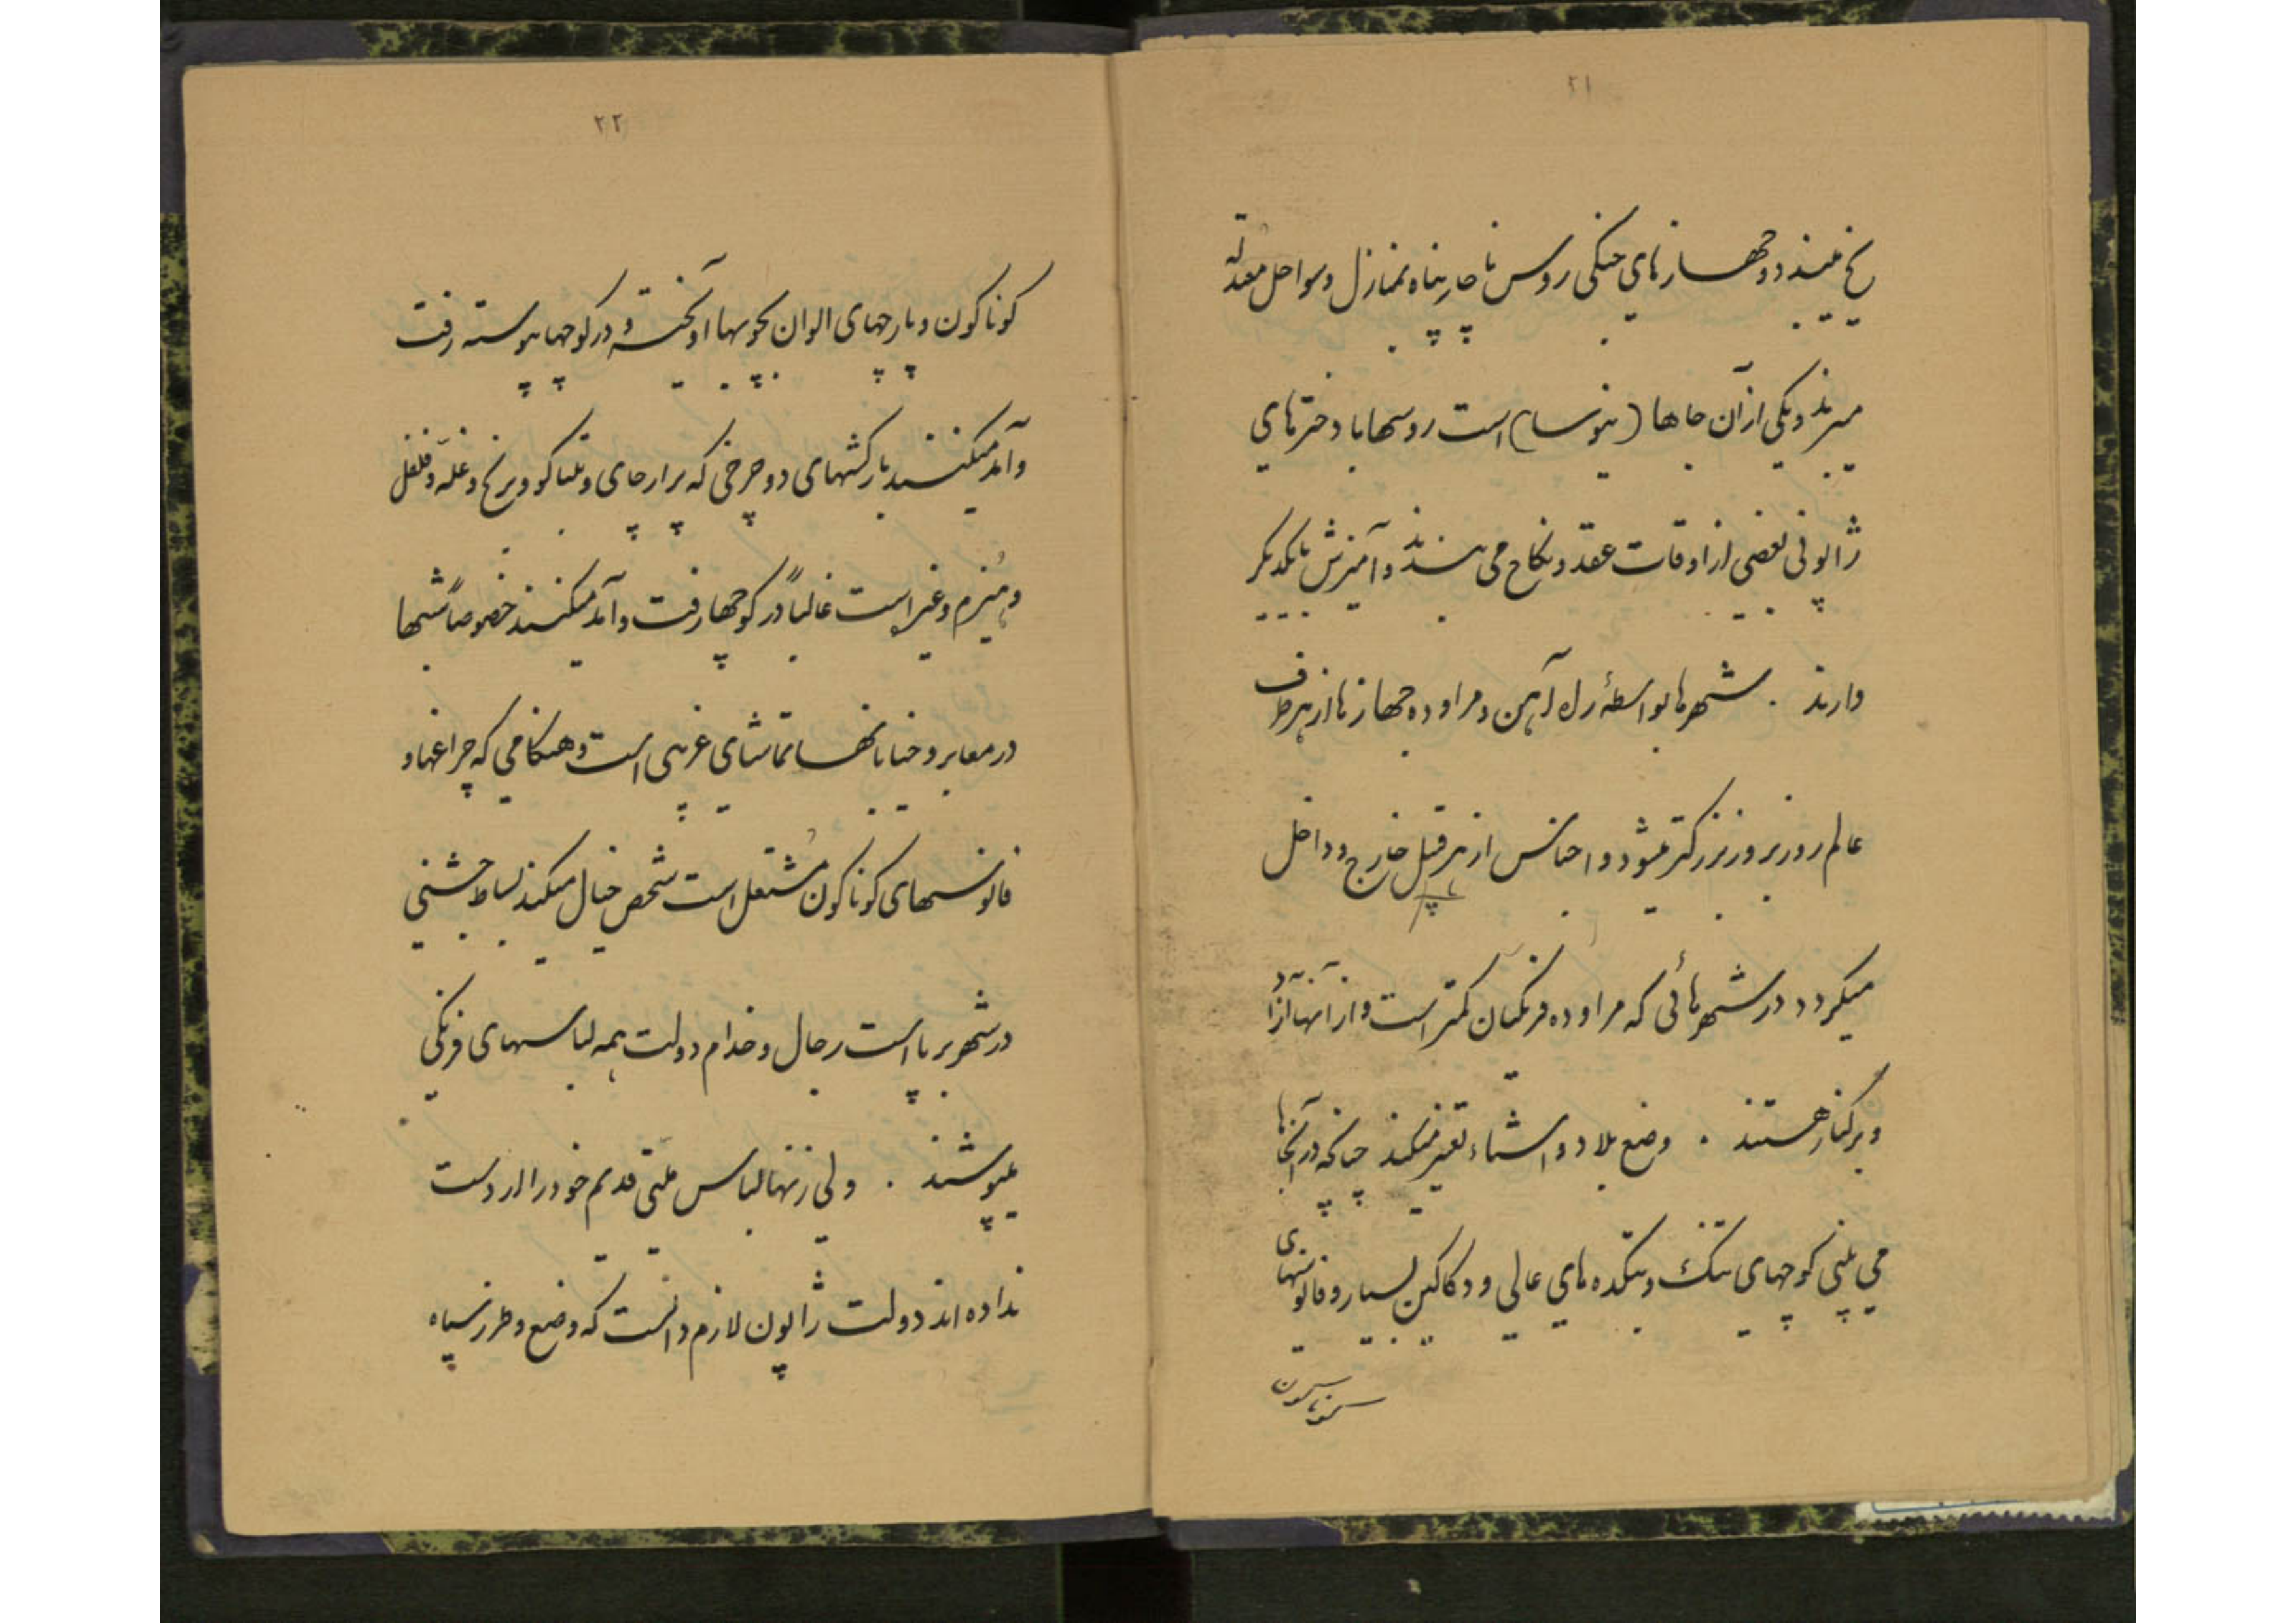 ۲۱
یخ میبندد و جهازهای جنگی روس ناچار پناه بمنازل و سواحل معتدله
میبرند و یکی از آن جاها (ینوسا) است روسها با دخترهای
ژاپونی بعضی از اوقات عقد و نکاح می بندند و آمیزش با یکدیگر
دارند . شهرها بواسطهٔ راه آهن و مراوده جهازها از هر طرف
عالم روز بروز بزرگتر میشود و اجناس از هر قبیل خارج و داخل
میگردد در شهرهائی که مراوده فرنگیان کمتر است و از آنها آزاد
و برکنار هستند . وضع بلاد و اشیاء تغییر نمیکند چنانکه در آنجاها
می بینی کوچهای تنگ و بتکده های عالی و دکاکین بسیار و فانوسهای
۲۲
گوناگون و پارچهای الوان بچوبها آویخته و در کوچها پیوسته رفت
و آمد میکنند بارکشهای دو چرخی که پر از چای و تنباکو و برنج و غله و فلفل
و هیزم و غیره است غالباً در کوچها رفت و آمد میکنند خصوصاً شبها
در معابر و خیابانها تماشای غریبی است و هنگامی که چراغها و
فانوسهای گوناگون مشتعل است شخص خیال میکند بساط جشنی
در شهر برپا است رجال و خدام دولت همه لباسهای فرنگی
میپوشند . ولی زنها لباس ملتی قدیم خود را از دست
نداده اند دولت ژاپون لازم دانست که وضع و طرز سپاه